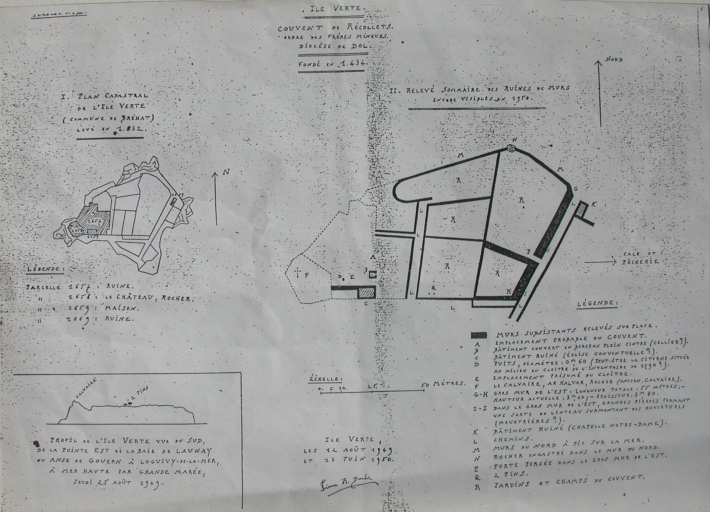 ILE VERTE.
COUVENT DE RÉCOLLETS.
ORDRE DES FRÈRES MINEURS.
DIOCÈSE DE DOL.
FONDÉ EN 1.434.
NORD
I. PLAN CADASTRAL
DE L'ILE VERTE
(COMMUNE DE BRÉHAT)
LEVÉ EN 1.832.
II. RELEVÉ SOMMAIRE DES RUINES DE MURS
ENCORE VISIBLES EN 1950.
N
LÉGENDE:
PARCELLE 2657: RUINE.
" 2658: LE CHÂTEAU, ROCHER.
" 2659: MAISON.
" 2669: RUINE.
CALE ET
PÊCHERIE
LÉGENDE:
MURS SUBSISTANTS RELEVÉS SUR PLACE.
A EMPLACEMENT PROBABLE DU COUVENT.
B BÂTIMENT COUVERT EN BERCEAU PLEIN CINTRE (CELLIER?).
C BÂTIMENT RUINÉ (ÉGLISE CONVENTUELLE?).
D PUITS, DIAMÈTRE: 0m60 (PEUT-ÊTRE LA CITERNE SITUÉE
AU MILIEU DU CLOÎTRE DE L'INVENTAIRE DE 1790?).
E EMPLACEMENT PRÉSUMÉ DU CLOÎTRE.
F LE CALVAIRE, ROCHER (ANCIEN CALVAIRE).
G-H GROS MUR DE L'EST: LONGUEUR TOTALE: 55 MÈTRES;
HAUTEUR ACTUELLE: ÉPAISSEUR:
I-J DANS LE GROS MUR DE L'EST, GRANDES PIERRES FORMANT
UNE SORTE DE LINTEAU SURMONTANT DES OUVERTURES
(MEURTRIÈRES?).
K BÂTIMENT RUINÉ (CHAPELLE NOTRE-DAME).
L CHEMINS.
M MURS DU NORD À PIC SUR LA MER.
N ROCHER ENCASTRÉ DANS LE MUR DU NORD.
P PORTE PERCÉE DANS LE GROS MUR DE L'EST.
Q 2 PINS.
R JARDINS ET CHAMPS DU COUVENT.
ÉCHELLE:
50 MÈTRES.
CALVAIRE
2 PINS
PROFIL DE L'ILE VERTE VUE DU SUD,
DE LA POINTE EST DE LA BAIE DE LAUNAY
OU ANSE DE GOUVERN À LOGUIVY-DE-LA-MER,
À MER HAUTE PAR GRANDE MARÉE,
JEUDI 25 AOÛT 1949.
ILE VERTE,
LES 12 AOÛT 1949
ET 23 JUIN 1950.